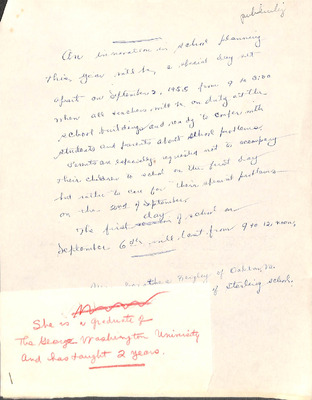 publicity
An innovation in school planning
This year will be a special day set
apart on September 2, 1955 from 9 to 3:00
when all teachers will be on duty at the
school buildings and ready to confer with
students and parents about school problems.
Parents are especially urged not to accompany
their children to school on the first day
but rather to come for their special problems
on the 2nd of September.
The first day of school on
September 6th will last from 9 to 12 noon.
of Oakton, Va.
of Sterling School.
She is a graduate of
The George Washington University
and has taught 2 years.